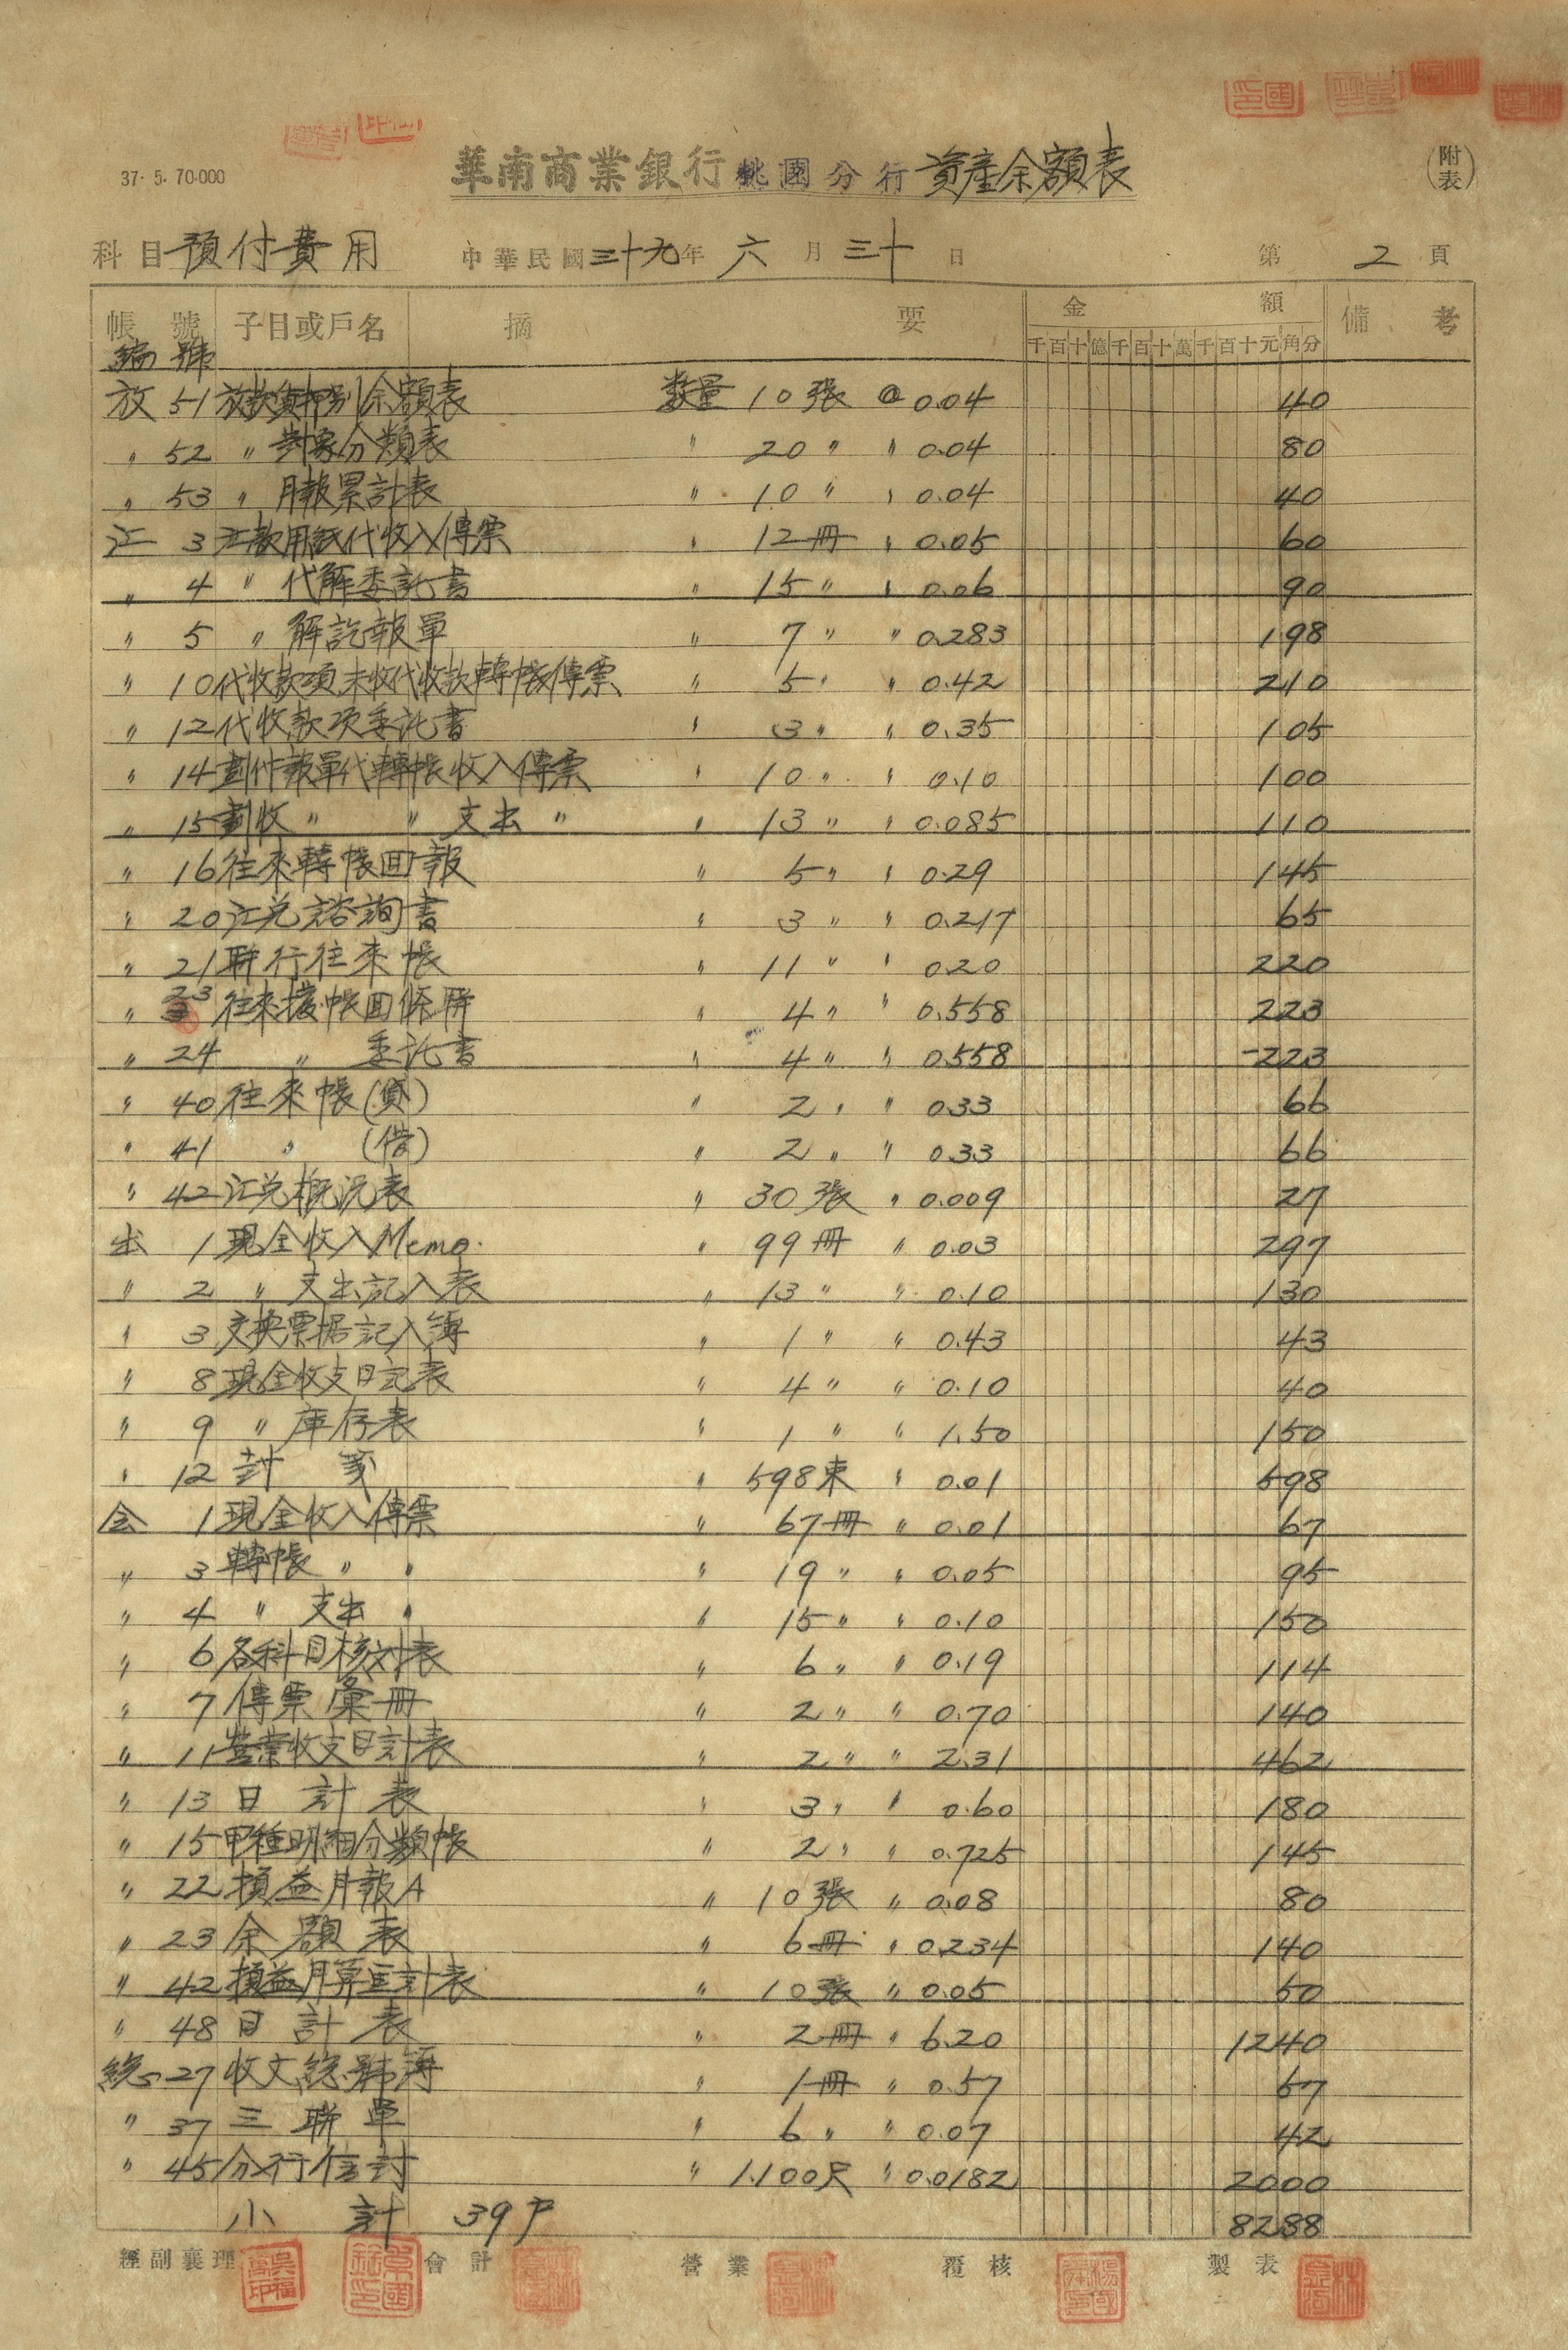 37. 5. 70.000
華南商業銀行桃園分行資產余額表
(附表)
科目 預付費用 中華民國三十九年六月三十日 第2頁
帳號 子目或戶名 摘要 金額 備考
編號 千百十億千百十萬千百十元角分
放 51 放款貨押別余額表 数量 10張 @ 0.04 40
〃 52 〃 對象分類表 〃 20 〃 〃 0.04 80
〃 53 〃 月報累計表 〃 10 〃 〃 0.04 40
汇 3 汇款用紙代收入傳票 〃 12冊 〃 0.05 60
〃 4 〃 代解委託書 〃 15 〃 〃 0.06 90
〃 5 〃 解訖報單 〃 7 〃 〃 0.283 198
〃 10 代收款項未收代收款轉帳傳票 〃 5 〃 〃 0.42 210
〃 12 代收款項委託書 〃 3 〃 〃 0.35 105
〃 14 劃付報單代轉帳收入傳票 〃 10 〃 〃 0.10 100
〃 15 劃收 〃 〃 支出 〃 〃 13 〃 〃 0.085 110
〃 16 往來轉帳回報 〃 5 〃 〃 0.29 145
〃 20 汇兑諮詢書 〃 3 〃 〃 0.217 65
〃 21 聯行往來帳 〃 11 〃 〃 0.20 220
〃 23 往來擾帳回條聯 〃 4 〃 〃 0.558 223
〃 24 〃 委託書 〃 4 〃 〃 0.558 223
〃 40 往來帳(貸) 〃 2 〃 〃 0.33 66
〃 41 〃 (借) 〃 2 〃 〃 0.33 66
〃 42 汇兑概況表 〃 30張 〃 0.009 27
出 1 現金收入Memo. 〃 99冊 〃 0.03 297
〃 2 〃 支出記入表 〃 13 〃 〃 0.10 130
〃 3 交换票据記入簿 〃 1 〃 〃 0.43 43
〃 8 現金收支日記表 〃 4 〃 〃 0.10 40
〃 9 〃 庫存表 〃 1 〃 〃 1.50 150
〃 12 封 〃 598束 〃 0.01 598
会 1 現金收入傳票 〃 67冊 〃 0.01 67
〃 3 轉帳 〃 〃 〃 19 〃 〃 0.05 95
〃 4 〃 支出 〃 〃 15 〃 〃 0.10 150
〃 6 各科目核対表 〃 6 〃 〃 0.19 114
〃 7 傳票彙冊 〃 2 〃 〃 0.70 140
〃 11 營業收支日計表 〃 2 〃 〃 2.31 462
〃 13 日計表 〃 3 〃 〃 0.60 180
〃 15 甲種明細分類帳 〃 2 〃 〃 0.725 145
〃 22 損益月報A 〃 10張 〃 0.08 80
〃 23 余額表 〃 6冊 〃 0.234 140
〃 42 損益月算累計表 〃 10張 〃 0.05 50
〃 48 日計表 〃 2冊 〃 6.20 1240
總 27 收文總號簿 〃 1冊 〃 0.57 57
〃 37 三聯單 〃 6 〃 〃 0.07 42
〃 45 分行信封 〃 1.100尺 〃 0.0182 2000
小計 39戶 8288
經副襄理 會計 營業 覆核 製表